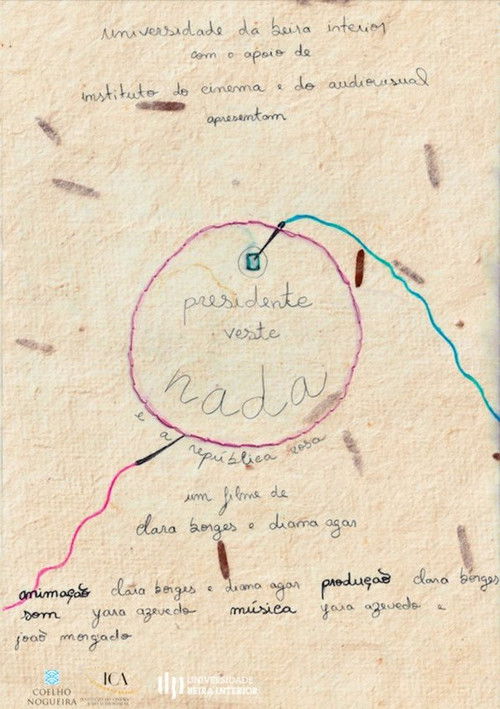 universidade da beira interior
com o apoio de
instituto do cinema e do audiovisual
apresentam
presidente
veste
nada
e a república rosa
um filme de
clara borges e diana agar
animação clara borges e diana agar produção clara borges
som yara azevedo música yara azevedo e
joão morgado
COELHO
NOGUEIRA
ICA
UNIVERSIDADE
BEIRA INTERIOR